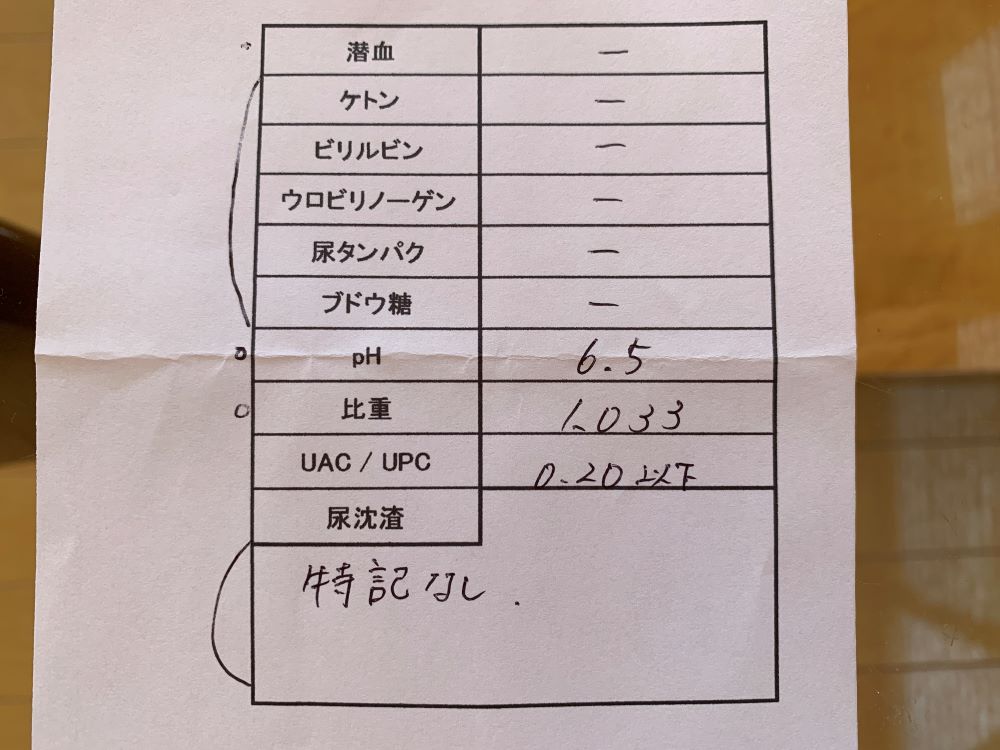 潜血 ー
ケトン ー
ビリルビン ー
ウロビリノーゲン ー
尿タンパク ー
ブドウ糖 ー
pH 6.5
比重 1.033
UAC / UPC 0.20以下
尿沈渣
特記なし.